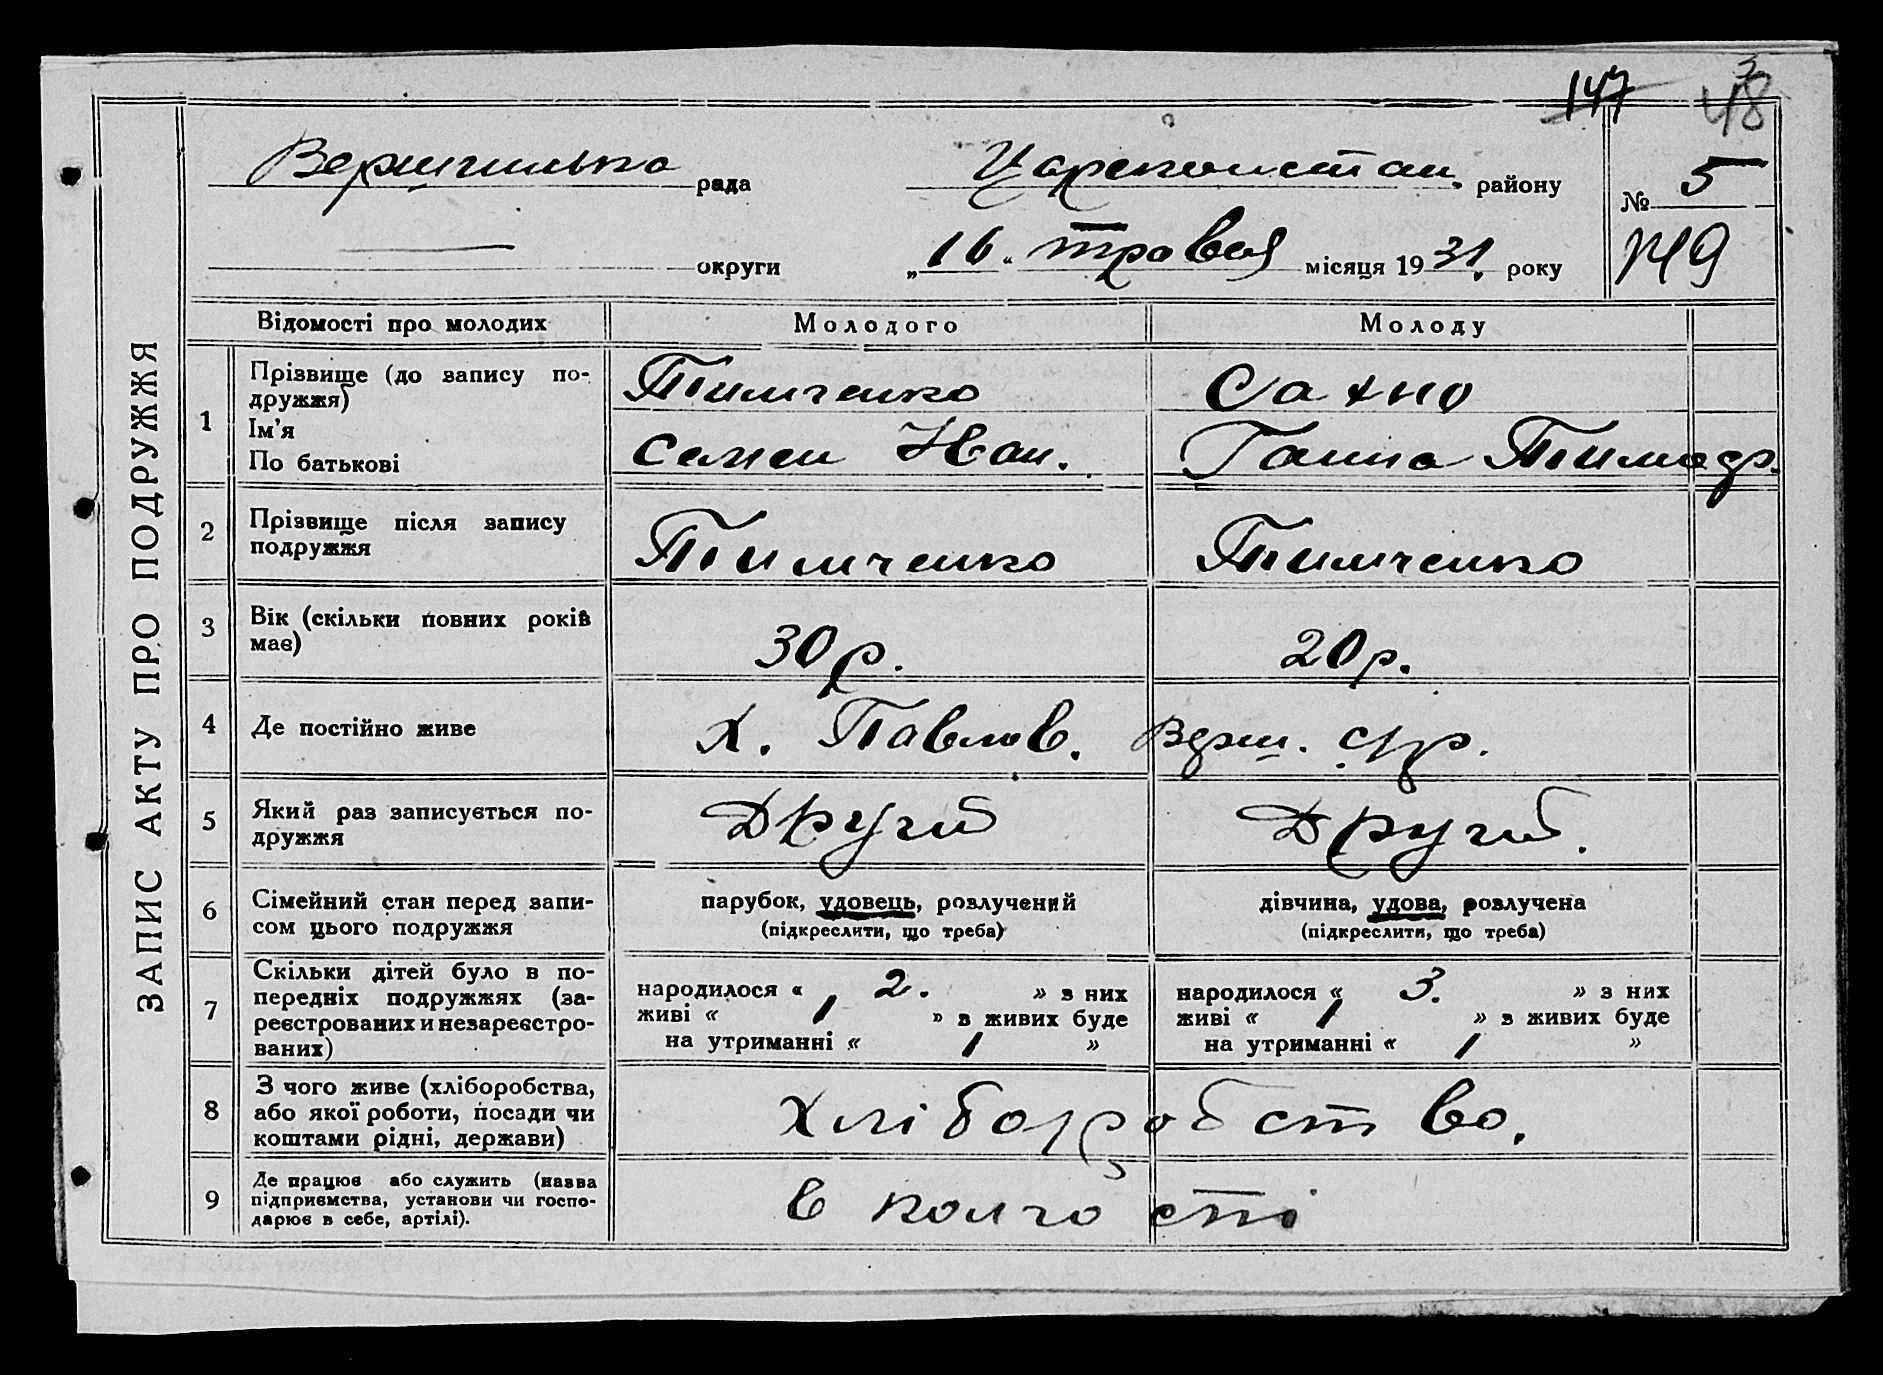 147 48
Вершильська рада Царекон стан. району № 5
округи „16“ травня місяця 1931. року 149
ЗАПИС АКТУ ПРО ПОДРУЖЖЯ
Відомості про молодих Молодого Молоду
1 Прізвище (до запису по-
дружжя) Тимченко Сахно
Ім'я
По батькові Семен Иван. Ганна Тимофр.
2 Прізвище після запису
подружжя Тимченко Тимченко
3 Вік (скільки повних років
має) 30 р. 20 р.
4 Де постійно живе х. Павлов. Верш. с/р.
5 Який раз записується по-
дружжя Другий Другий.
6 Сімейний стан перед запи-
сом цього подружжя
парубок, удовець, розлучений
(підкреслити, що треба)
дівчина, удова, розлучена
(підкреслити, що треба)
7 Скільки дітей було в по-
передніх подружжях (за-
реєстрованих и незареєстро-
ваних)
народилося « 2. » з них
живі « 1 » з живих буде
на утриманні « 1 »
народилося « 3. » з них
живі « 1 » з живих буде
на утриманні « 1 »
8 З чого живе (хліборобства,
або якої роботи, посади чи
коштами рідні, держави)
хліборобство.
9 Де працює або служить (назва
підприємства, установи чи госпо-
дарює в себе, артілі).
в колгоспі